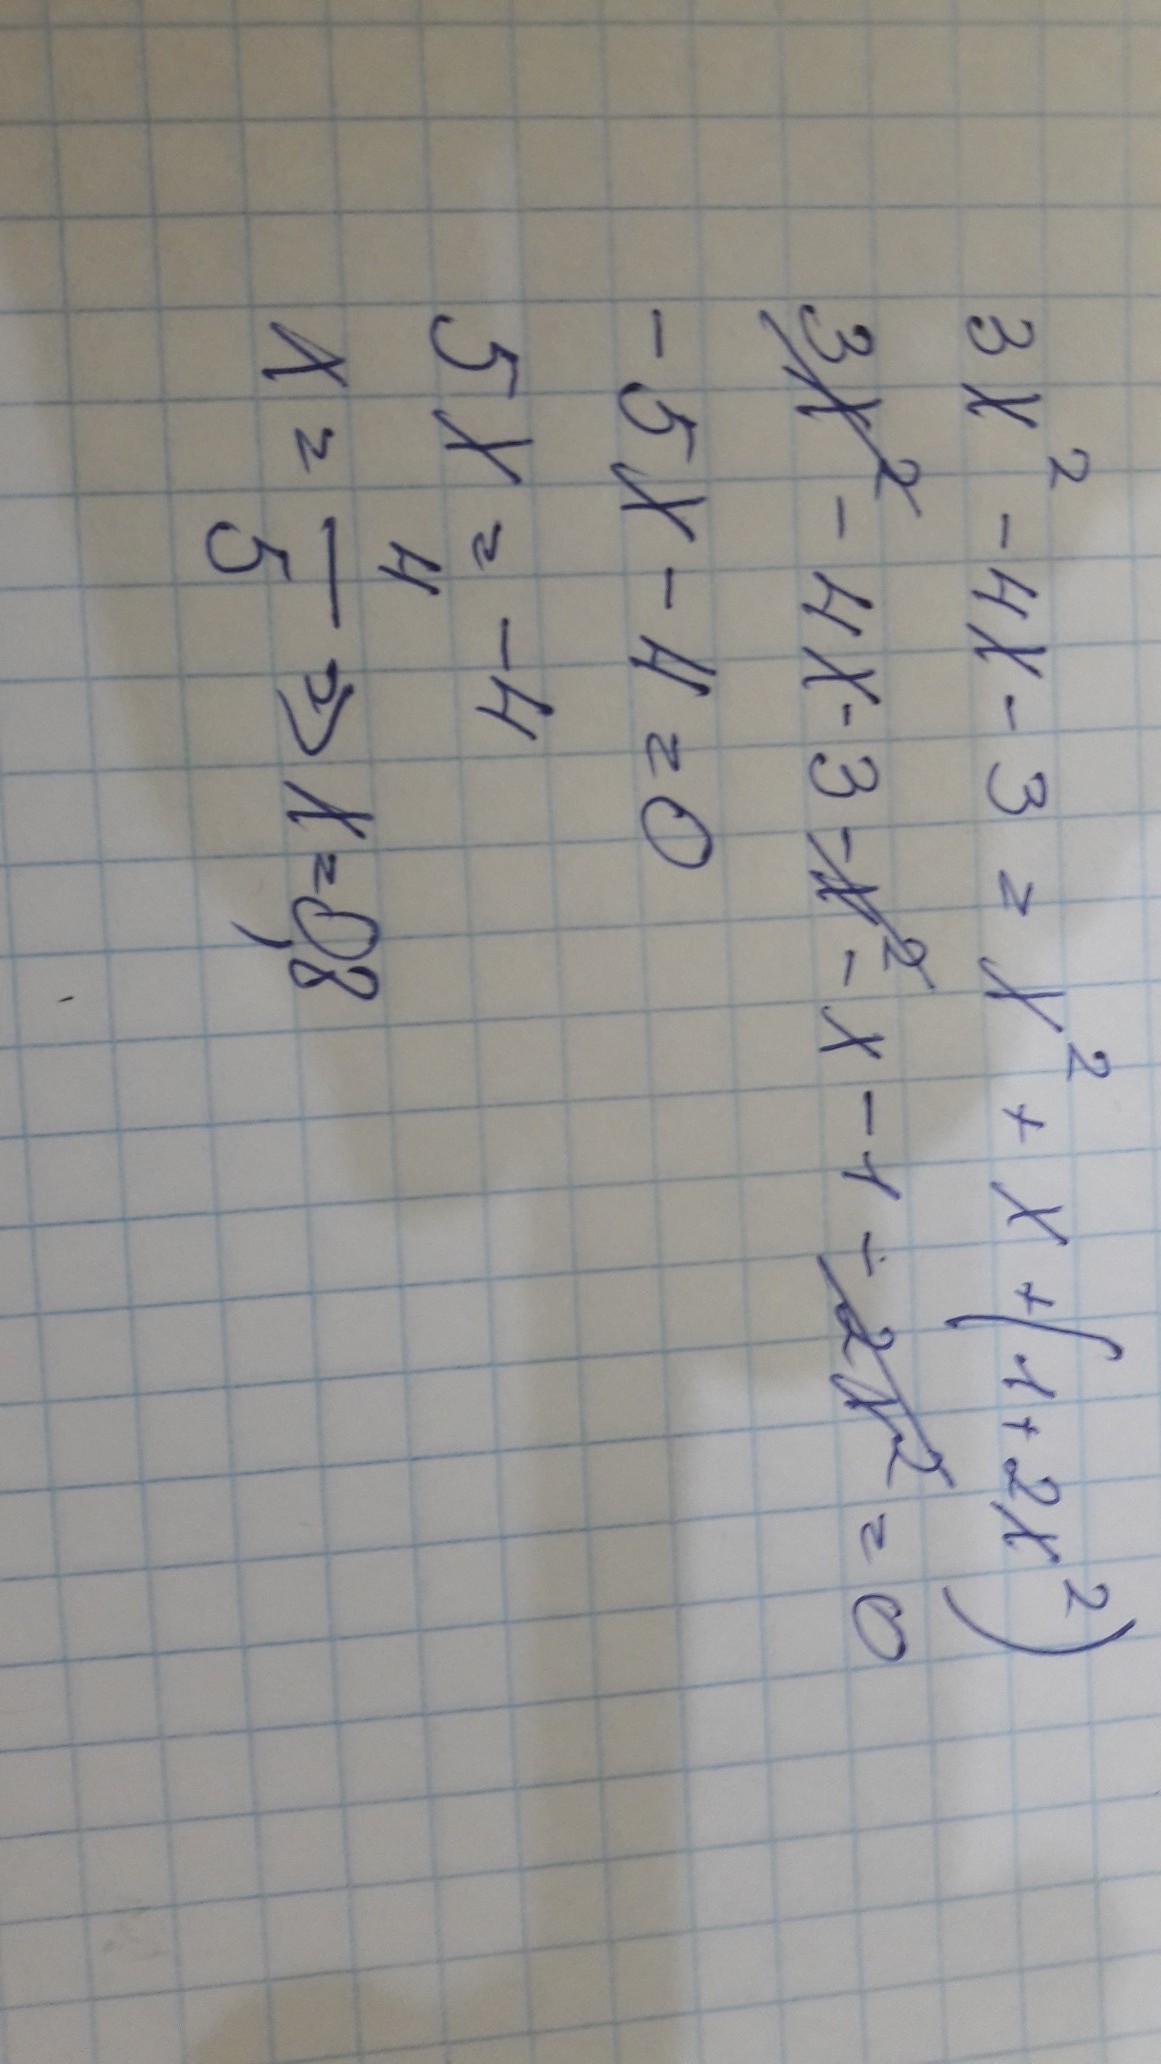 3x² - 4x - 3 = x² + x + (1 + 2x²)
3x² - 4x - 3 - x² - x - 1 - 2x² = 0
- 5x - 4 = 0
5x = -4
x = 4/5 => x = 0,8